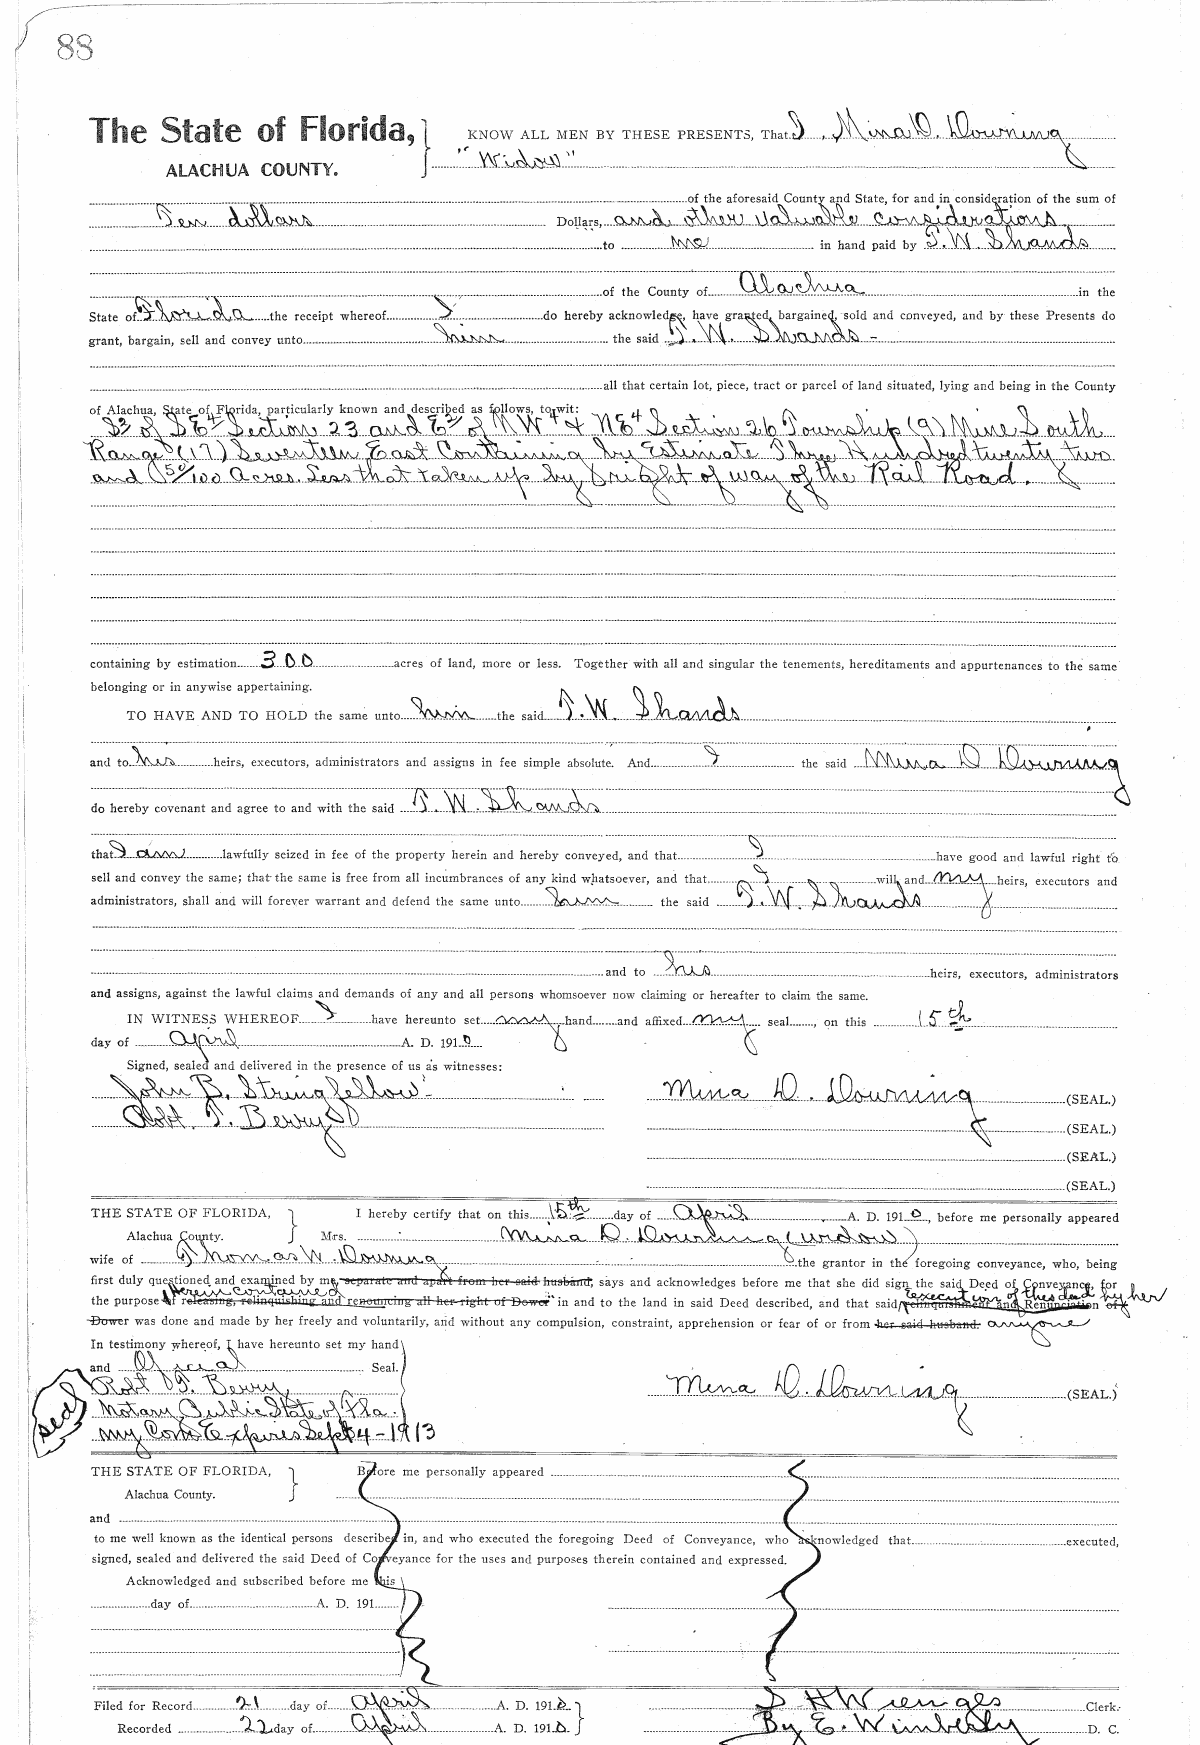 88
The State of Florida, KNOW ALL MEN BY THESE PRESENTS, That I, Mina D. Downing
ALACHUA COUNTY. "Widow"
of the aforesaid County and State, for and in consideration of the sum of
Ten dollars Dollars, and other valuable considerations
to me in hand paid by T. W. Shands
of the County of Alachua in the
State of Florida the receipt whereof I do hereby acknowledge, have granted, bargained, sold and conveyed, and by these Presents do
grant, bargain, sell and convey unto him the said T. W. Shands -
all that certain lot, piece, tract or parcel of land situated, lying and being in the County
of Alachua, State of Florida, particularly known and described as follows, to wit:
S2 of SE4 Section 23 and E2 of NW4 & NE4 Section 26 Township (9) Nine South
Range (17) Seventeen East Containing by Estimate Three Hundred twenty two
and 50/100 Acres. Less that taken up by right of way of the Rail Road.
containing by estimation 300 acres of land, more or less. Together with all and singular the tenements, hereditaments and appurtenances to the same
belonging or in anywise appertaining.
TO HAVE AND TO HOLD the same unto him the said T. W. Shands
and to his heirs, executors, administrators and assigns in fee simple absolute. And I the said Mina D Downing
do hereby covenant and agree to and with the said T. W. Shands
that I am lawfully seized in fee of the property herein and hereby conveyed, and that I have good and lawful right to
sell and convey the same; that the same is free from all incumbrances of any kind whatsoever, and that I will and my heirs, executors and
administrators, shall and will forever warrant and defend the same unto him the said T. W. Shands
and to his heirs, executors, administrators
and assigns, against the lawful claims and demands of any and all persons whomsoever now claiming or hereafter to claim the same.
IN WITNESS WHEREOF I have hereunto set my hand and affixed my seal, on this 15th
day of April A. D. 1910
Signed, sealed and delivered in the presence of us as witnesses:
John B. Stringfellow Mina D. Downing (SEAL.)
Robt. T. Berry (SEAL.)
(SEAL.)
(SEAL.)
THE STATE OF FLORIDA, I hereby certify that on this 15th day of April A. D. 1910, before me personally appeared
Alachua County. Mrs. Mina D. Downing (widow)
wife of Thomas W. Downing the grantor in the foregoing conveyance, who, being
first duly questioned and examined by me, separate and apart from her said husband, says and acknowledges before me that she did sign the said Deed of Conveyance, for
herein contained execution of this deed by her
the purpose of releasing, relinquishing and renouncing all her right of Dower in and to the land in said Deed described, and that said relinquishment and Renunciation of
Dower was done and made by her freely and voluntarily, and without any compulsion, constraint, apprehension or fear of or from her said husband. anyone
In testimony whereof, I have hereunto set my hand
and Official Seal.
Robt T. Berry Mina D. Downing (SEAL.)
Notary Public State of Fla.
seal
My Com Expires Sept 4 - 1913
THE STATE OF FLORIDA, Before me personally appeared
Alachua County.
and
to me well known as the identical persons described in, and who executed the foregoing Deed of Conveyance, who acknowledged that executed,
signed, sealed and delivered the said Deed of Conveyance for the uses and purposes therein contained and expressed.
Acknowledged and subscribed before me this
day of A. D. 191
Filed for Record 21 day of April A. D. 1910 S H Wienges Clerk.
Recorded 22 day of April A. D. 1910. By E. Wimberly D. C.